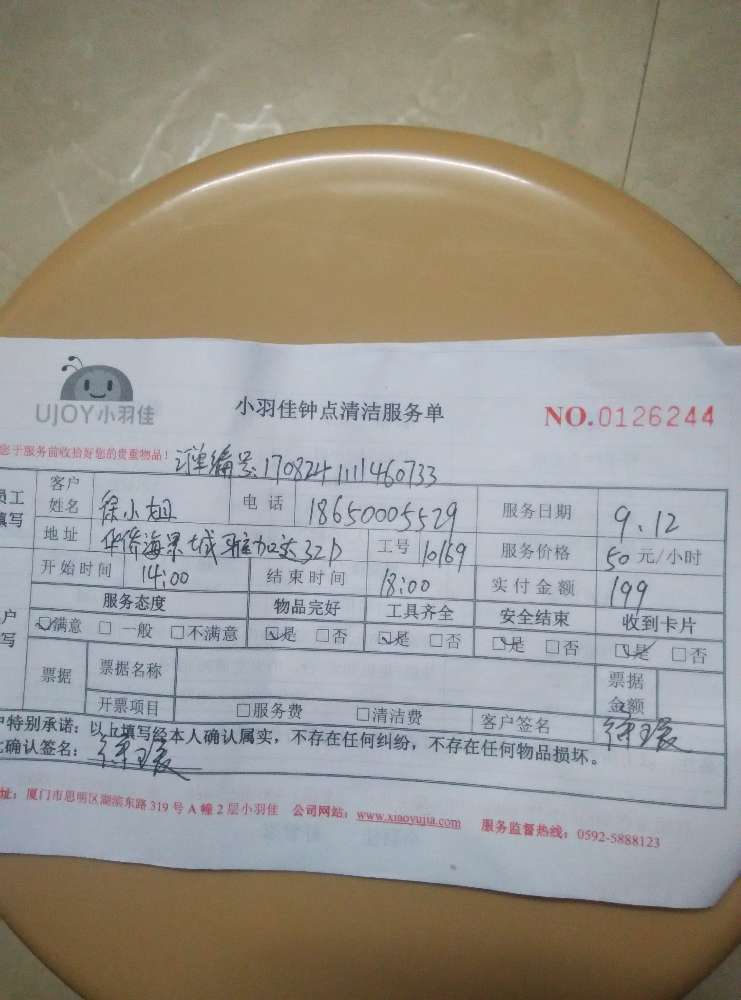 UJOY小羽佳
小羽佳钟点清洁服务单
NO.0126244
您于服务前收拾好您的贵重物品! 订单编号:1708241111460733
员工填写 客户姓名 徐小姐 电话 18650005529 服务日期 9.12
地址 华侨海景城 32D 工号 10169 服务价格 50元/小时
开始时间 14:00 结束时间 18:00 实付金额 199
服务态度 物品完好 工具齐全 安全结束 收到卡片
户写 ☑满意 □一般 □不满意 ☑是 □否 ☑是 □否 ☑是 □否 ☑是 □否
票据 票据名称 票据金额
开票项目 □服务费 □清洁费 客户签名
户特别承诺:以上填写经本人确认属实,不存在任何纠纷,不存在任何物品损坏。
确认签名:
址:厦门市思明区湖滨东路319号A幢2层小羽佳 公司网站:www.xiaoyujia.com 服务监督热线:0592-5888123